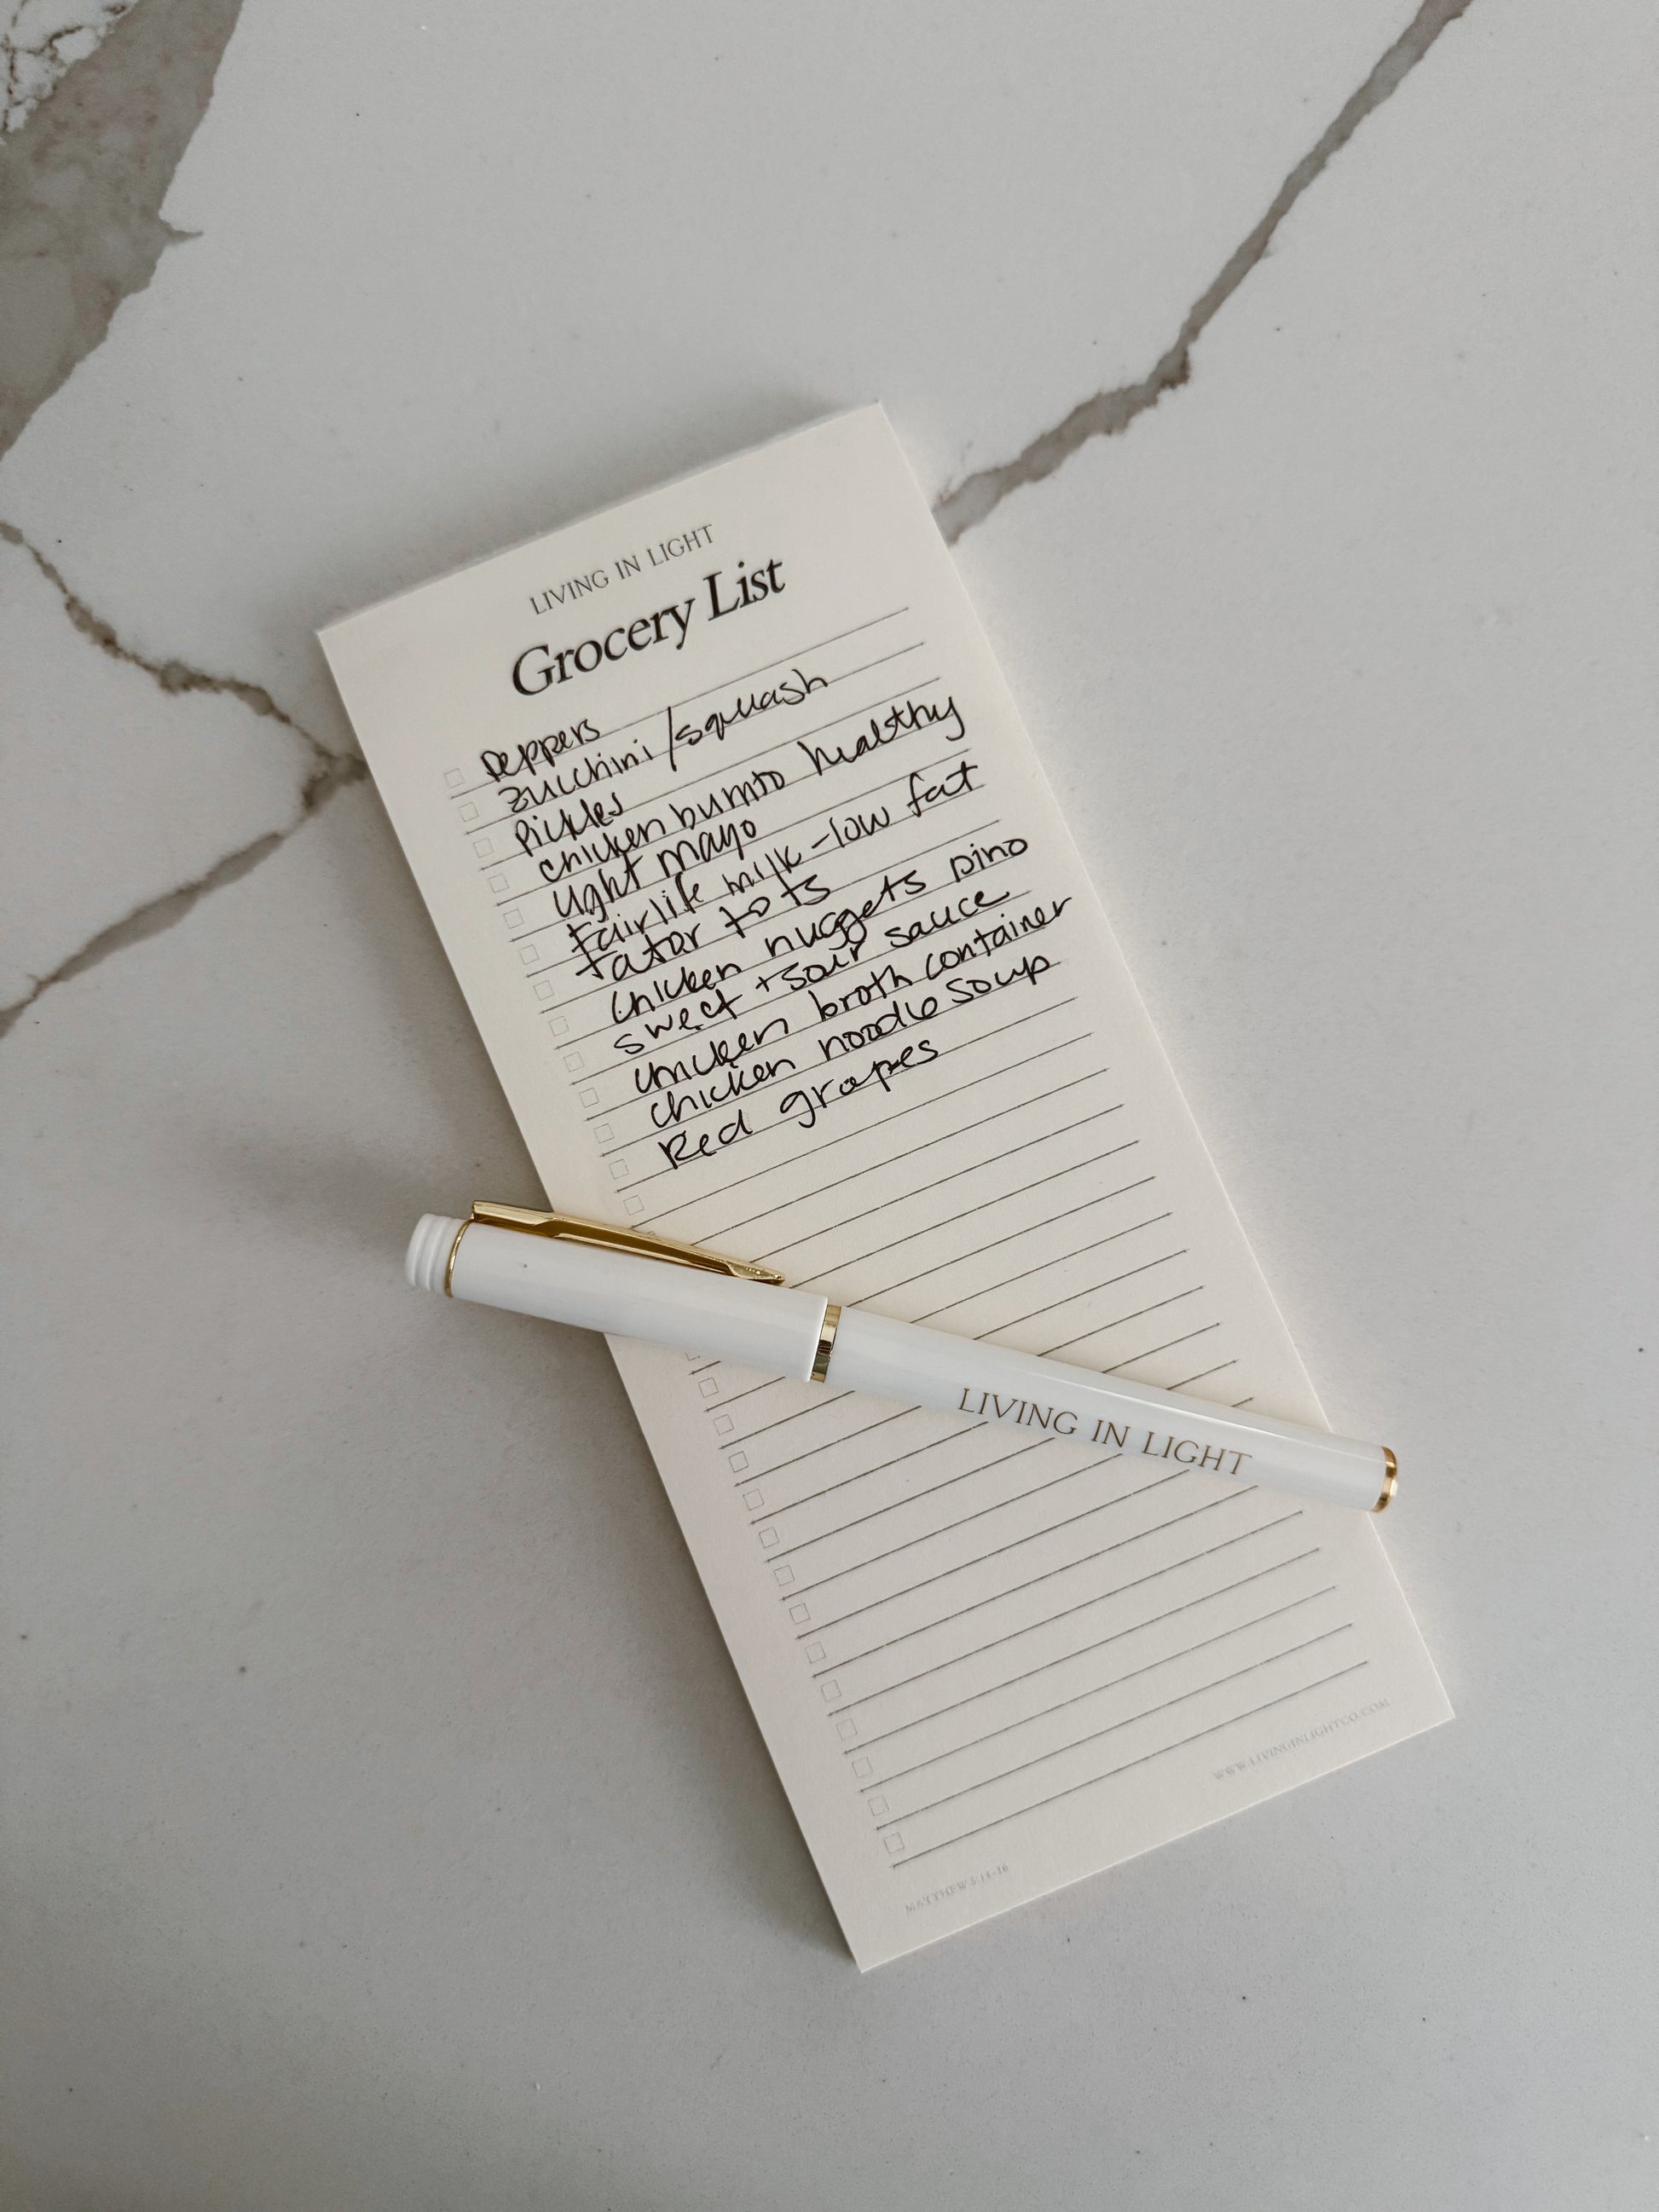 LIVING IN LIGHT
Grocery List
Peppers
zucchini/squash
Pickles
chicken burrito healthy
light mayo
Fairlife milk - low fat
tator tots
chicken nuggets dino
sweet + sour sauce
chicken broth container
chicken noodle soup
Red grapes
LIVING IN LIGHT
WWW.LIVINGINLIGHTCO.COM
MATTHEW 5:14-16